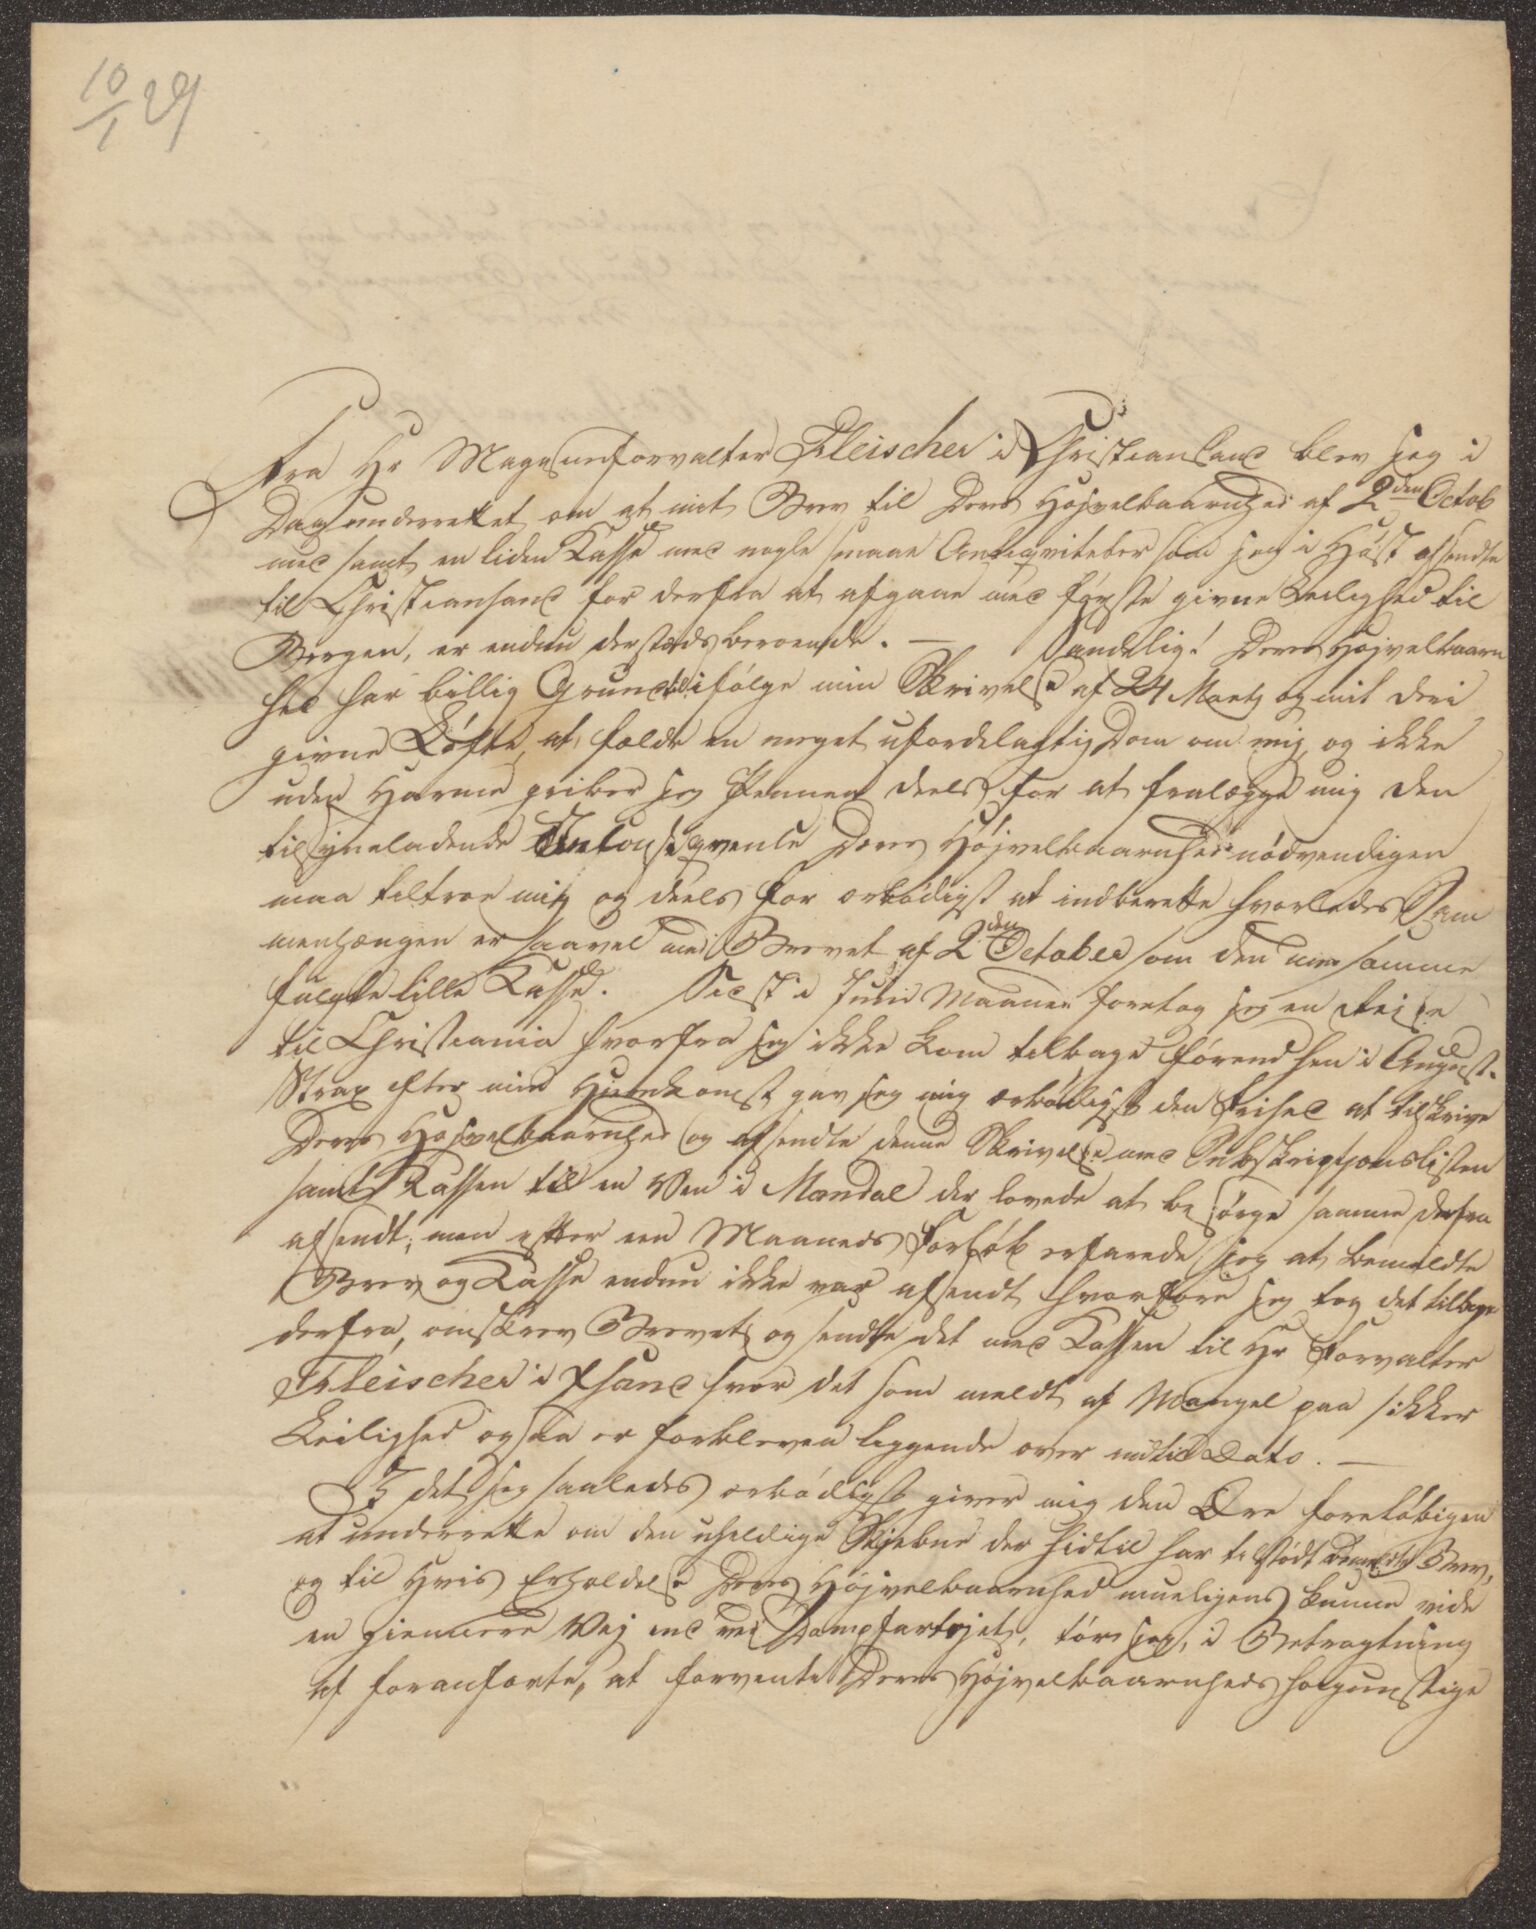 10/1 29
Fra Hr Magasinforvalter Fleischer i Christiansand blev jeg i
Dag underrettet om at mit Brev til Deres Højvelbaarnhed af 2den Octob
med samt en liden Kasse med nogle smaae Antiqviteter som jeg i Høst afsendte
til Christiansand for derfra at afgaae med første givne Leilighed til
Bergen, er endnu dersteds beroende. — Sandelig! Deres Højvelbaarn
hed har billig Grund ifølge min Skrivelse af 24 Martz og mit deri
givne Løfte, at fælde en meget ufordelagtig Dom om mig, og ikke
uden Harme griber jeg Pennen deels for at fralægge mig den
tilsyneladende Inkonseqvents Deres Højvelbaarnhed nødvendigen
maa tiltroe mig og deels for ærbødigst at indberette hvorledes Sam
menhængen er saavel med Brevet af 2den October som den med samme
fulgte lille Kasse. Sidst i Juni Maaned foretog jeg en Reise
til Christiania hvorfra jeg ikke kom tilbage førend hen i August.
Strax efter min Hjemkomst gav jeg mig ærbødigst den Frihed at tilskrive
Deres Højvelbaarnhed og afsendte denne Skrivelse med Subskriptjonslisten
samt Kassen til en Ven i Mandal der lovede at besørge samme derfra
afsendt; men efter een Maaneds Forløb erfarede jeg at bemeldte
Brev og Kasse endnu ikke var afsendt hvorfore jeg tog det tilbage
derfra, omskrev Brevet og sendte det med Kassen til Hr Forvalter
Fleischer i Xsand hvor det som meldt af Mangel paa sikker
Leilighed ogsaa er forbleven liggende over indtil Dato. —
I det jeg saaledes ærbødigst giver mig den Ære foreløbigen
at underrette om den uheldige Skjebne der hidtil har tilstødt bemeldte Brev,
og til Hvis Erholdelse Deres Højvelbaarnhed mueligens kunne vide
en giennere Vej end ved Dampfartøjet, tør jeg, i Betragtning
af foranførte, at forvente Deres Højvelbaarnheds højgunstige